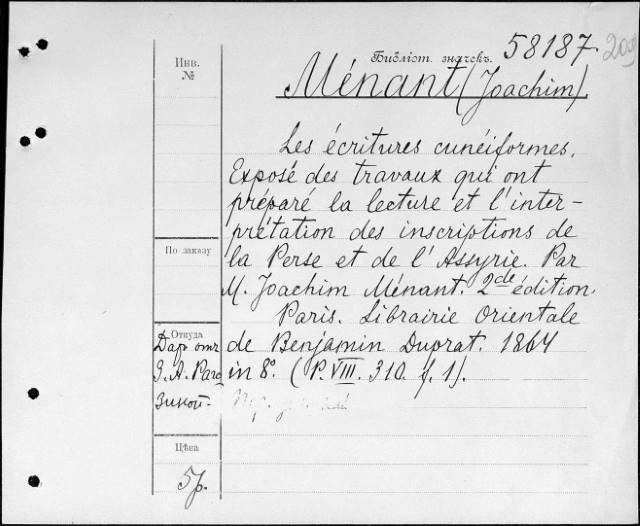 Библіот. значекъ. 58187.
Инв.
№
Ménant (Joachim).
Les écritures cunéiformes.
Exposé des travaux qui ont
préparé la lecture et l'inter-
prétation des inscriptions de
По заказу
la Perse et de l'Assyrie. Par
M. Joachim Ménant. 2de édition.
Paris. Librairie Orientale
Откуда
Даръ отъ
de Benjamin Duprat. 1864
З. А. Раго
in 8°. (P. VIII. 310. f. 1).
зиной.
Цѣна
5р.